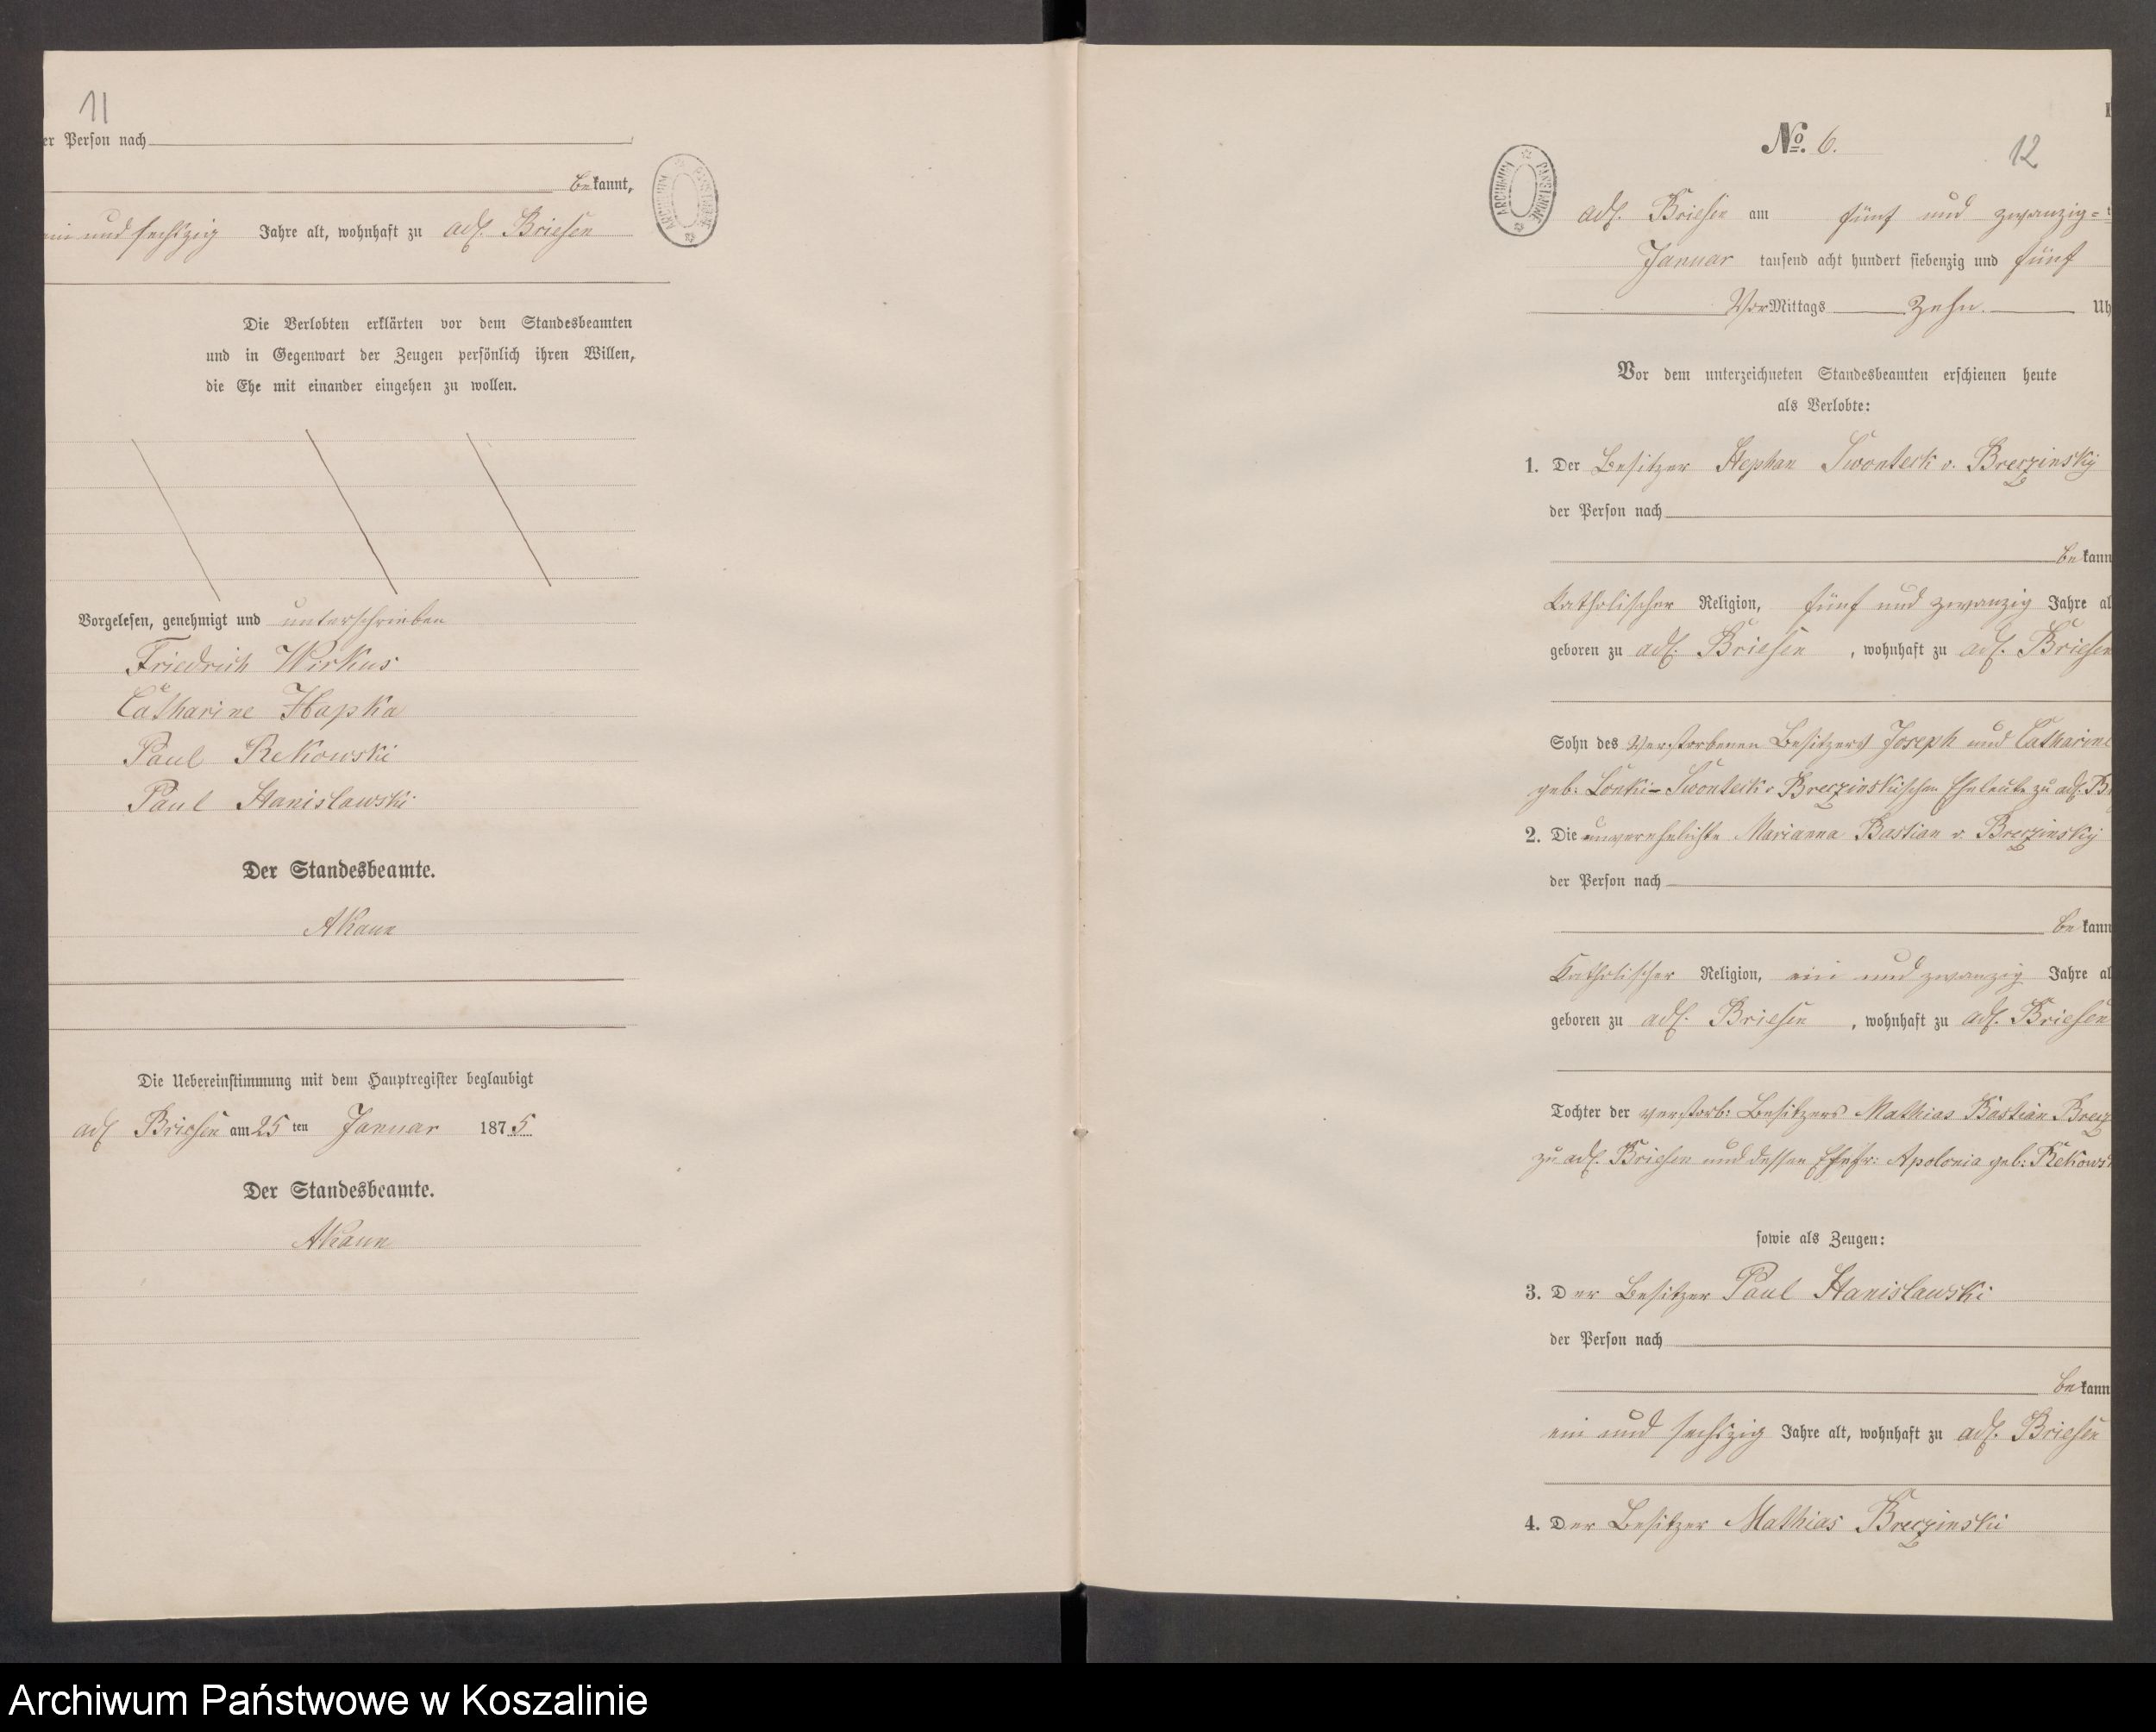 11
er Person nach
bekannt,
ein und sechszig Jahre alt, wohnhaft zu adl. Briesen
Die Verlobten erklärten vor dem Standesbeamten
und in Gegenwart der Zeugen persönlich ihren Willen,
die Ehe mit einander eingehen zu wollen.
Vorgelesen, genehmigt und unterschrieben
Friedrich Wirkus
Catharine Hapka
Paul Rekowski
Paul Stanislawski
Der Standesbeamte.
AKaun
Die Uebereinstimmung mit dem Hauptregister beglaubigt
adl Briesen am 25 ten Januar 1875
Der Standesbeamte.
AKaun
ARCHIWUM PAŃSTWOWE
No. 6.
12
ARCHIWUM PAŃSTWOWE
adl. Briesen am fünf und zwanzig=
Januar tausend acht hundert siebenzig und fünf
VorMittags Zehn. Uh
Vor dem unterzeichneten Standesbeamten erschienen heute
als Verlobte:
1. Der Besitzer Stephan Swonteck v. Breczinsky
der Person nach
bekann
katholischer Religion, fünf und zwanzig Jahre al
geboren zu adl. Briesen, wohnhaft zu adl. Briesen
Sohn des verstorbenen Besitzers Joseph und Catharine
geb: Swonteck v Breczinskischen Eheleute zu adl. B
2. Die unverehelichte Marianna Bastian v. Breczinsky
der Person nach
bekann
Katholischer Religion, ein und zwanzig Jahre al
geboren zu adl. Briesen, wohnhaft zu adl. Briesen
Tochter der verstorb: Besitzers Mathias Bastian Brecz
zu adl. Briesen und dessen Ehefr: Apolonia geb: Rekows
sowie als Zeugen:
3. Der Besitzer Paul Stanislawski
der Person nach
bekann
ein und sechszig Jahre alt, wohnhaft zu adl. Briesen
4. Der Besitzer Mathias Breczinski
Archiwum Państwowe w Koszalinie